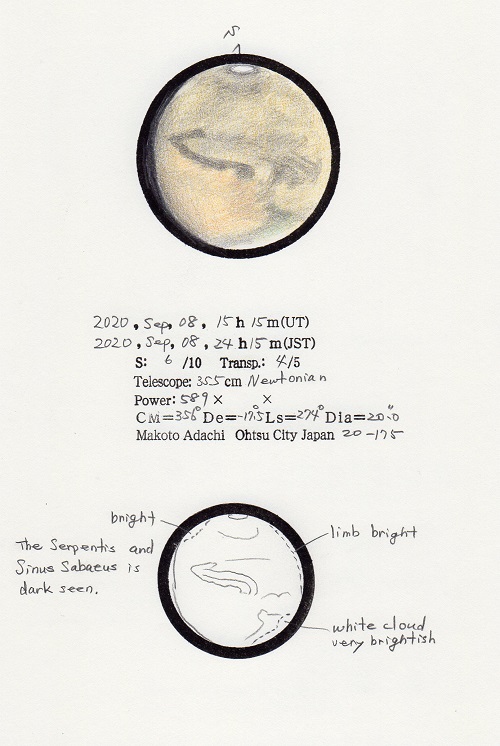 S
2020, Sep, 08, 15 h 15 m(UT)
2020, Sep, 08, 24 h 15 m(JST)
S: 6 /10 Transp.: 4/5
Telescope: 355cm Newtonian
Power: 589 × ×
CM=356° De=-17.5° Ls=274° Dia=20.0"
Makoto Adachi Ohtsu City Japan 20-175
bright
limb bright
The Serpentis and
Sinus Sabaeus is
dark seen.
white cloud
very brightish